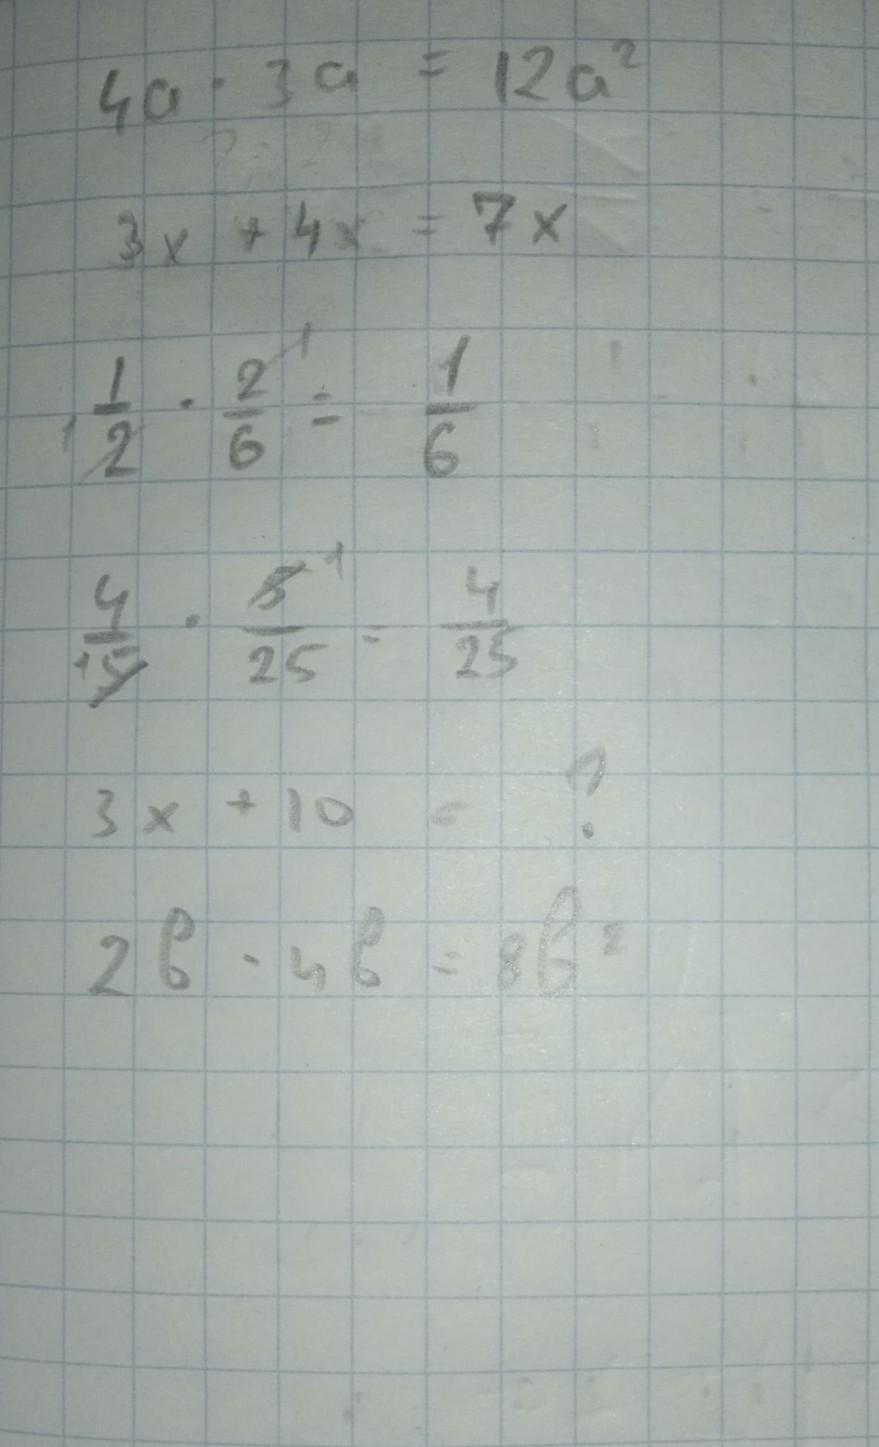 4a · 3a = 12a²
3x + 4x = 7x
1/2 · 2/6 = 1/6 1 1
4/5 · 5/25 = 4/25 1 1
3x + 10 = ?
2b · 4b = 8b²